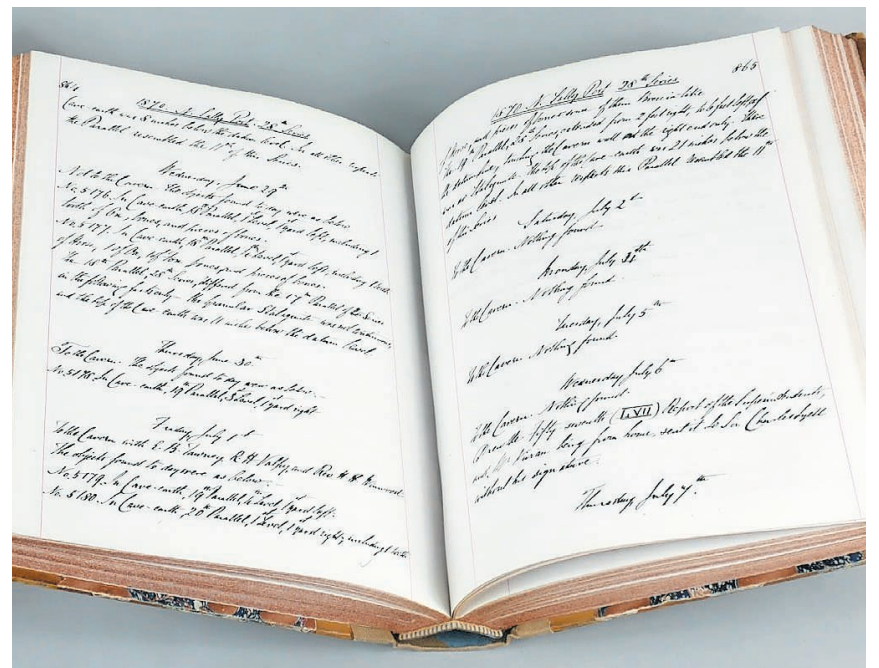 864
1870. N. Sally Port 28th Series
Cave-earth was 8 inches below the datum level. In all other respects
the Parallel resembled the 11th of this Series.
Wednesday, June 29th
to the Cavern. The objects found to day were as below
No. 5176. In Cave-earth, 18th Parallel, Level, 1 yard left, including 1
tooth of bones, and pieces of bones.
No. 5177. In Cave-earth, 18th Parallel, Level, 1 yard left, including
of Horse, 1 of bones and pieces of bones.
The 18th Parallel, 28th Series, differed from the 17th Parallel of the Series
in the following facts only. The Granular Stalagmite was not continuous,
and the top of the Cave-earth was 11 inches below the datum level
Thursday, June 30th
To the Cavern. The objects found to day were as below.
No. 5178. In Cave-earth, 19th Parallel, Level, 1 yard right
Friday, July 1st
To the Cavern with E. B. Tawney, R. H. and Rev. H. H. Winwood.
The objects found to day were as below.
No. 5179. In Cave-earth, 19th Parallel, Level, 1 yard left.
No. 5180. In Cave-earth, 20th Parallel, 1 Level, 1 yard right, including 1 tooth
865
1870. N. Sally Port 28th Series
of and pieces of bones some of them
the 19th Parallel, 28th Series, extended from 2 feet right, to 6 feet left of
datum line, the Cavern wall on the right end only. There
was no Stalagmite. The top of the Cave-earth was 21 inches below the
datum level. In all other respects this Parallel resembled the 11th
of the Series
Saturday, July 2nd
To the Cavern. Nothing found.
Monday, July 4th
To the Cavern. Nothing found.
Tuesday, July 5th
To the Cavern. Nothing found.
Wednesday July 6th
To the Cavern. Nothing found.
Drew the fifty seventh (LVII) Report of the Superintendents,
and, Mr. Vivian being from home, sent it to Sir Charles Lyell
without his signature.
Thursday July 7th.